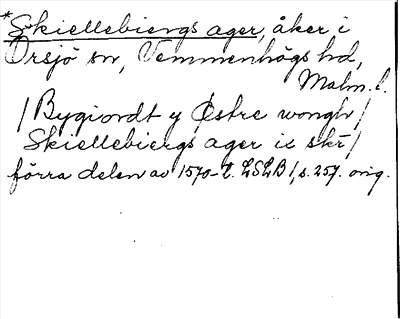 *Skiellebiergs ager, åker i
Örsjö sn, Vemmenhögs hd,
Malm. l.
/Bygiordt y Østre wongh/
Skiellebiergs ager ie skr/
förra delen av 1570-t. LSLB 1, s. 257. orig.